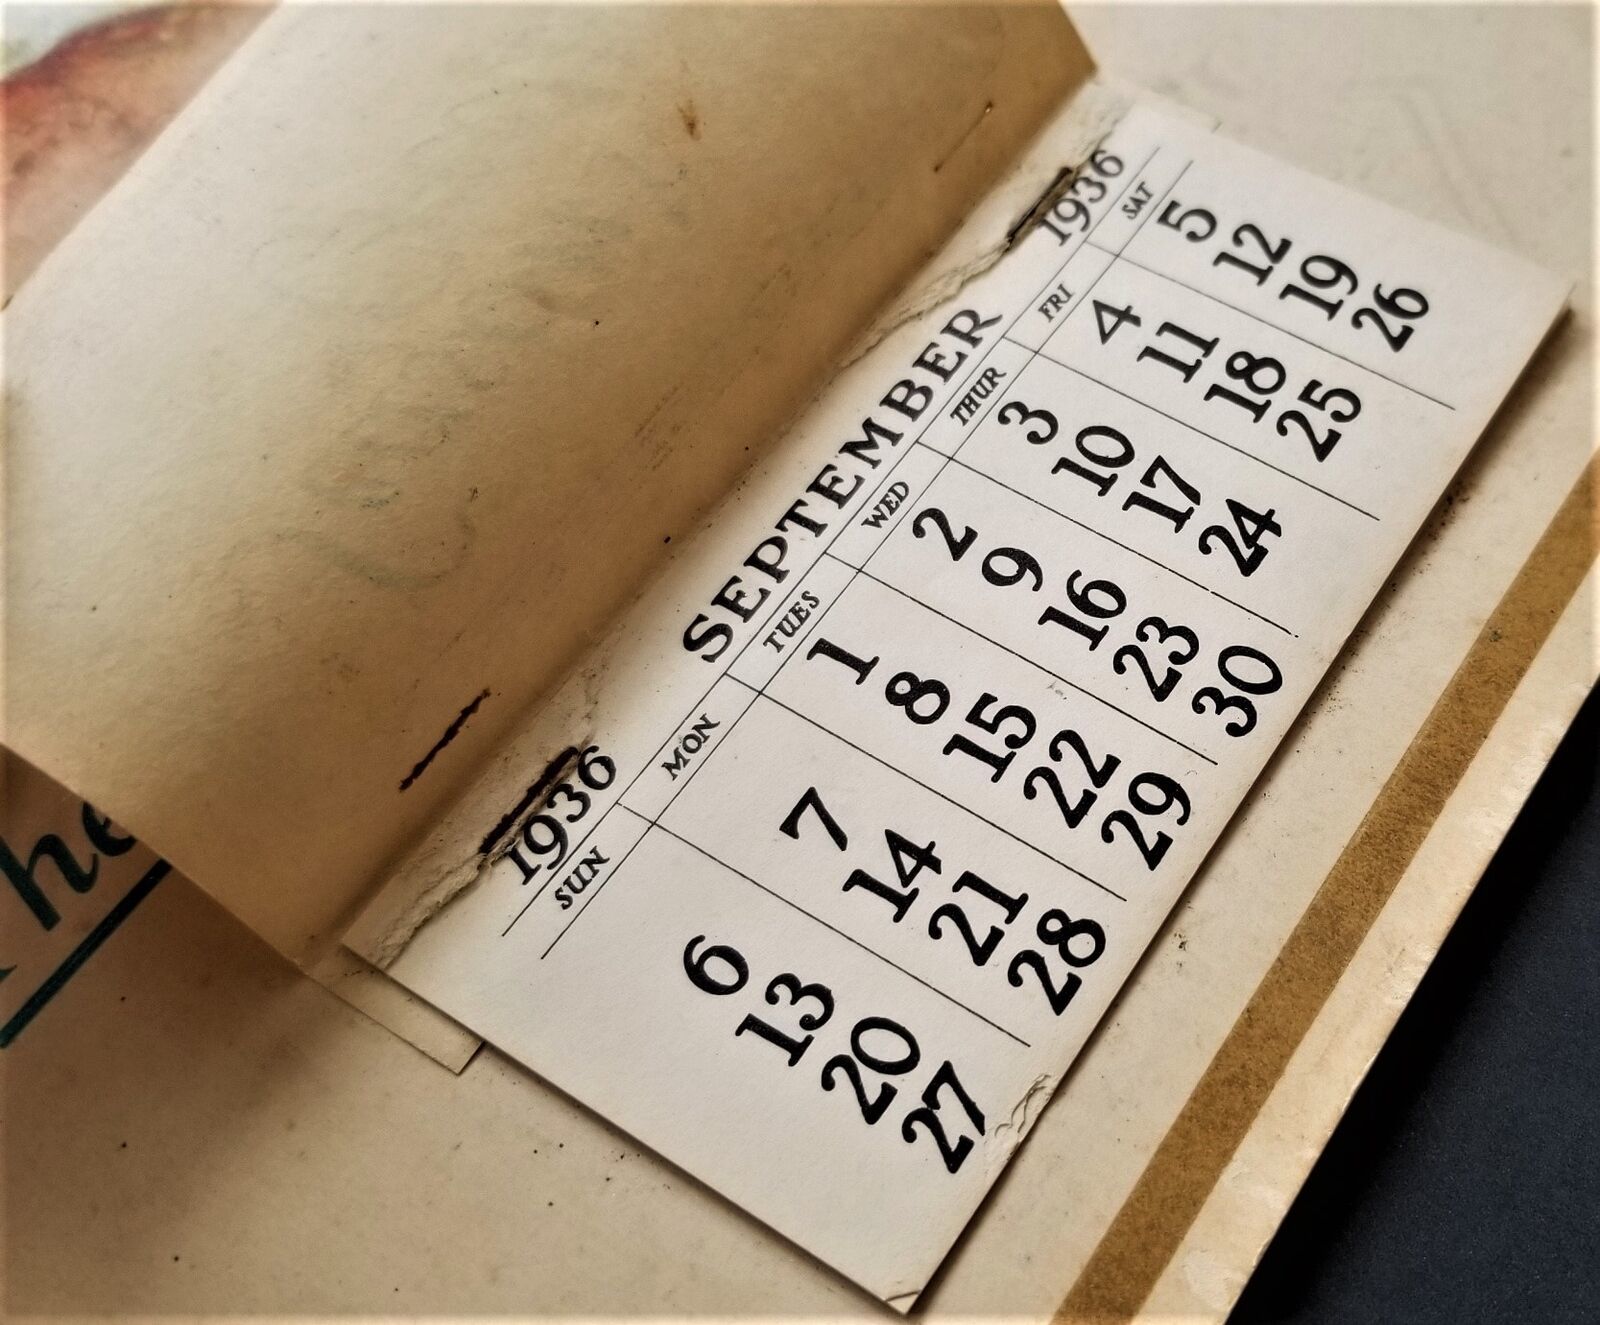 1936 SEPTEMBER 1936
SUN MON TUES WED THUR FRI SAT
1 2 3 4 5
6 7 8 9 10 11 12
13 14 15 16 17 18 19
20 21 22 23 24 25 26
27 28 29 30
he